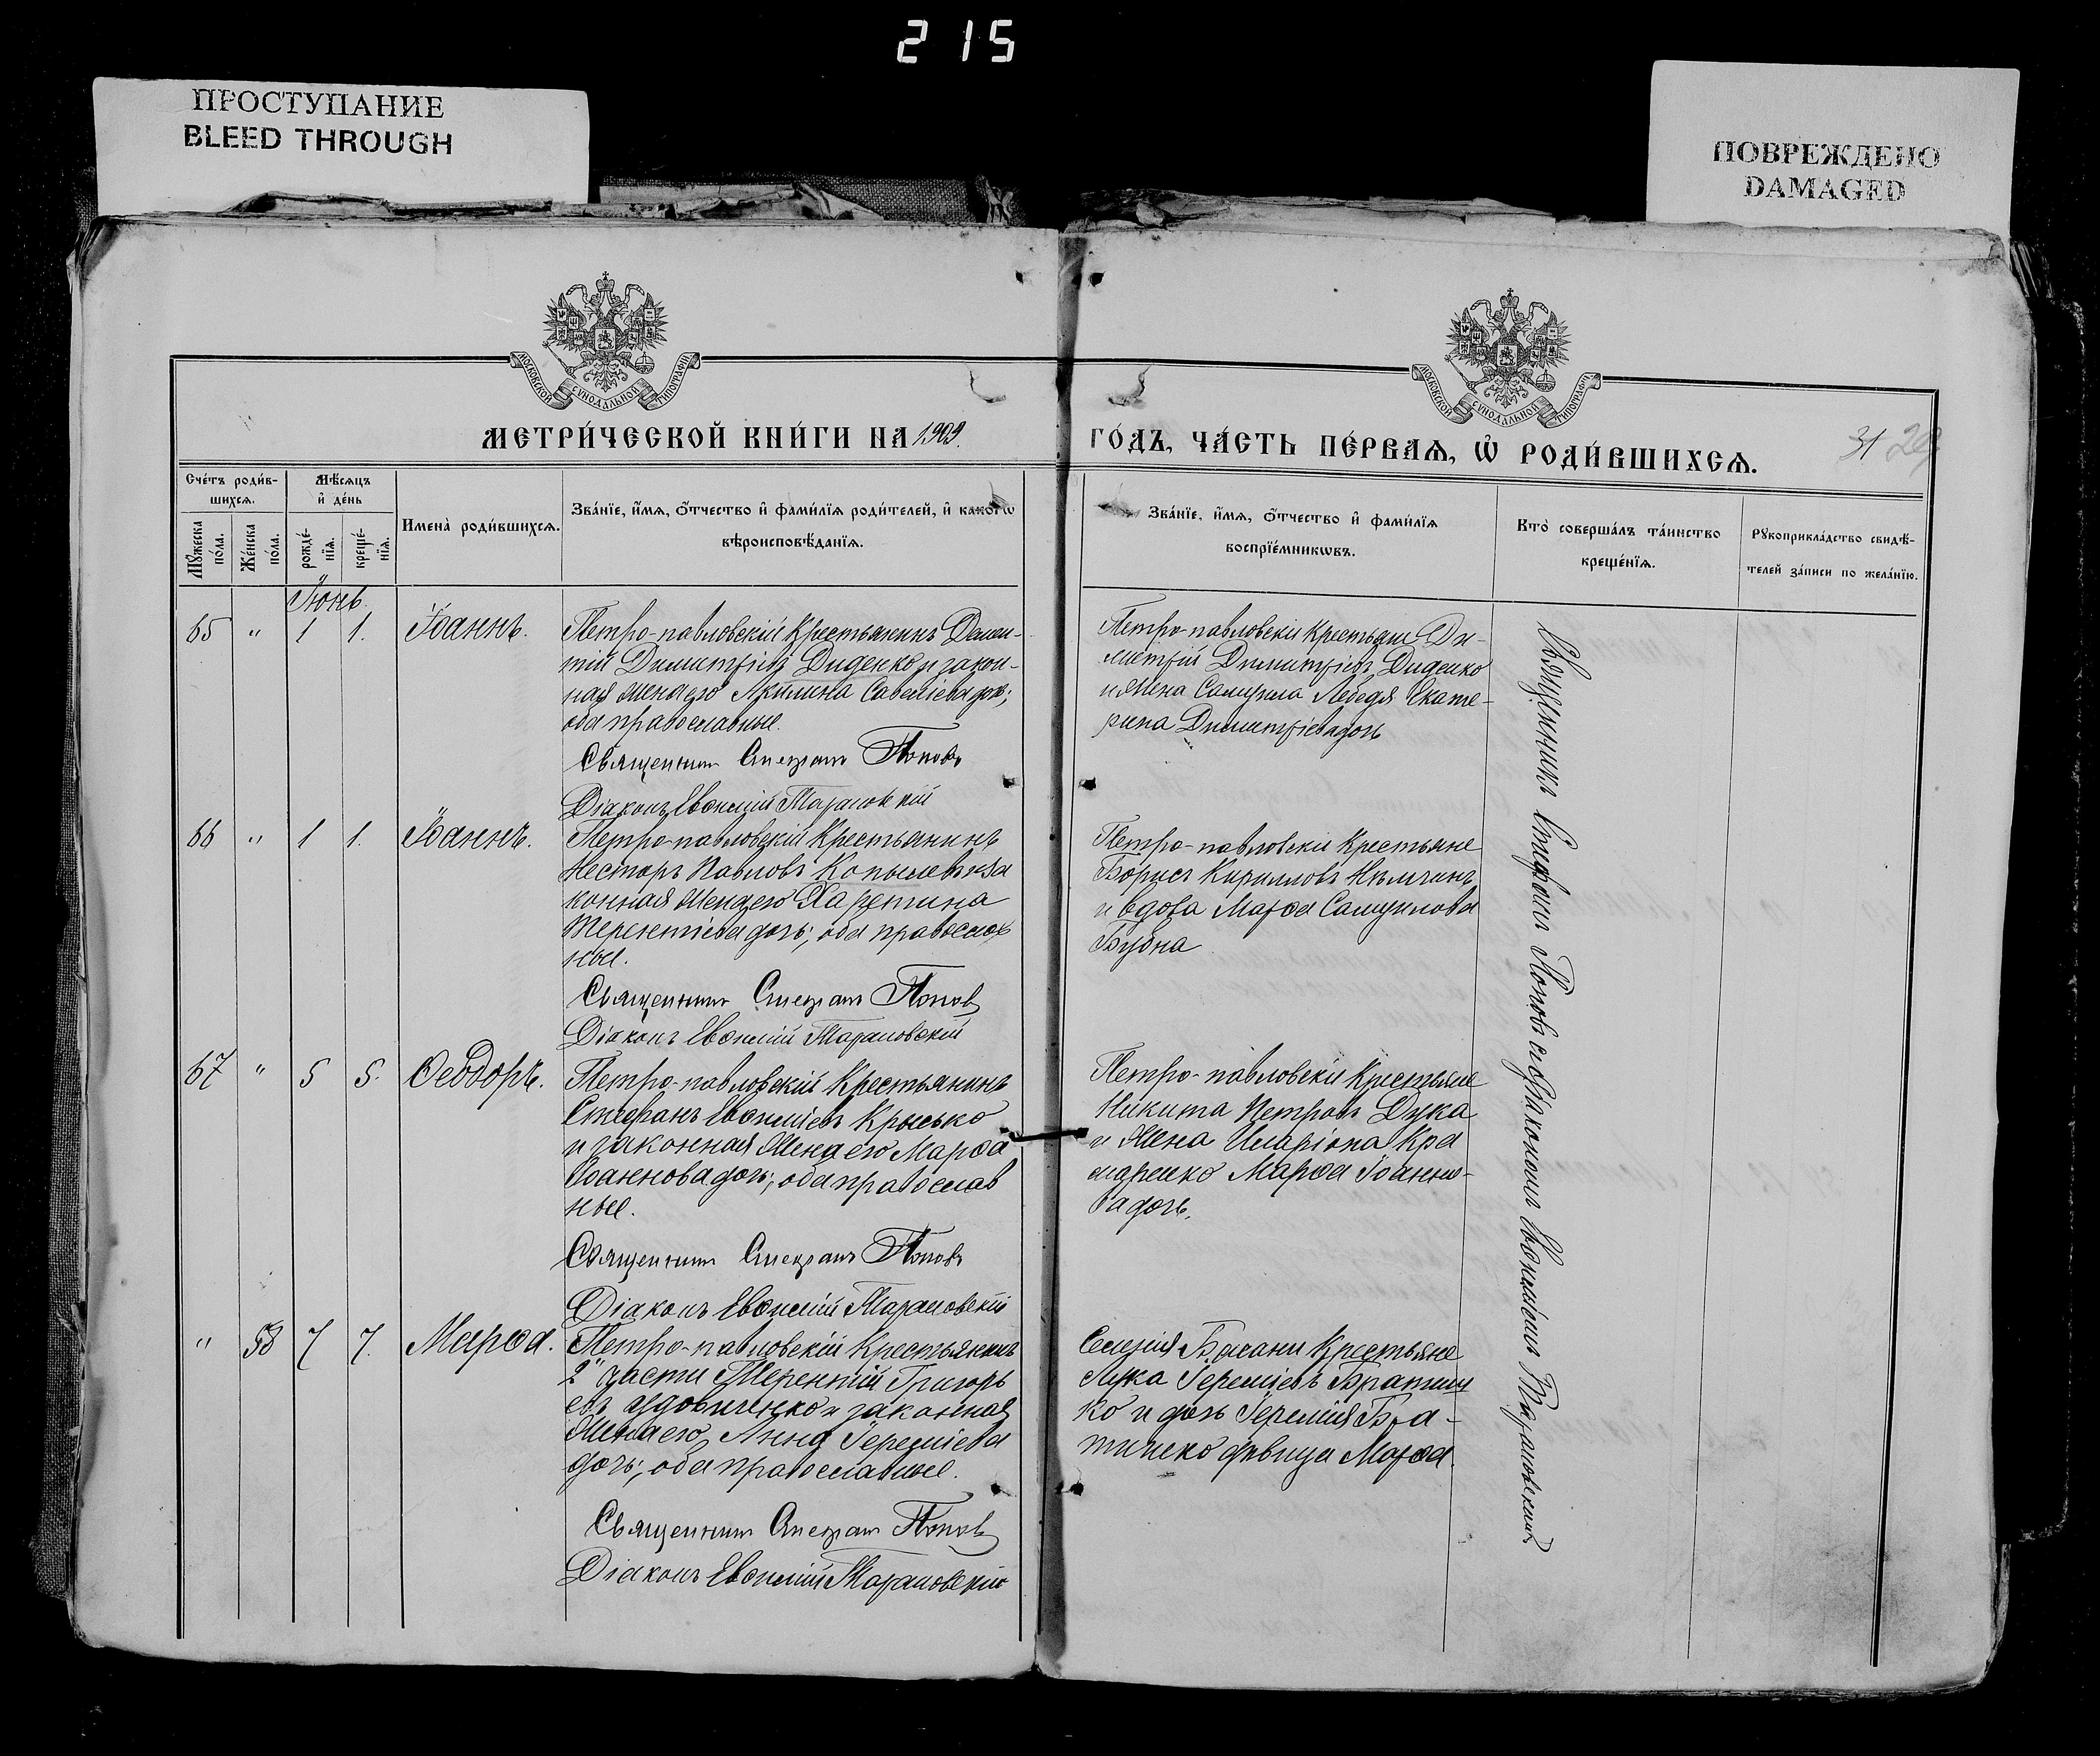 215
ПРОСТУПАНИЕ
BLEED THROUGH
ПОВРЕЖДЕНО
DAMAGED
МОСКОВСКОЙ СѴНОДАЛЬНОЙ ТИПОГРАФІИ
МОСКОВСКОЙ СѴНОДАЛЬНОЙ ТИПОГРАФІИ
МЕТРИ́ЧЕСКОЙ КНИ́ГИ НА 1909.
ГО́ДЪ, ЧА́СТЬ ПЕ́РВАѦ, Ѡ҆ РОДИ́ВШИХСѦ.
31 29
Сче́тъ роди́в-
шихсѧ.
Мѣ́сѧцъ
и҆ де́нь
Мꙋ́жеска по́ла.
Же́нска по́ла.
рожде́-
нїѧ.
креще́-
нїѧ.
Имена̀ роди́вшихсѧ.
Зва́нїе, и҆́мѧ, ѻ҆́тчество и҆ фами́лїѧ роди́телей, и҆ како́гѡ
вѣроисповѣ́данїѧ.
Зва́нїе, и҆́мѧ, ѻ҆́тчество и҆ фами́лїѧ
воспрїе́мникѡвъ.
Кто̀ соверша́лъ та́инство
креще́нїѧ.
Рꙋкоприкла́дство свидѣ́-
телей за́писи по жела́нїю.
Іюнь.
65 " 1 1. Іоаннъ.
Петро-павловскій Крестьянинъ Домен-
тій Димитріевъ Диденко и закон-
ная жена его Акилина Савеліева дочь;
оба православные.
Священник Стефан Поповъ
Діаконъ Евѳимій Тарановскій
Петро-павловскіе Крестьяне Ди-
митрій Димитріевъ Диденко
и жена Самуила Лебедя Екате-
рина Димитріева дочь
66 " 1 1. Іоаннъ.
Петро-павловскій Крестьянинъ
Несторъ Павловъ Копылевъ и за
конная жена его Харитина
Терентіева дочь; оба православ
ные.
Священник Стефан Попов
Діаконъ Евѳимій Тарановскій
Петро-павловскіе Крестьяне
Борисъ Кирилловъ Нѣмчинъ
и вдова Марѳа Самуилова
Бубна
67 " 5 5. Ѳеодоръ.
Петро-павловскій Крестьянинъ
Стефанъ Евѳиміевъ Крысько
и законная жена его Марѳа
Іоаннова дочь; оба православ
ные.
Священник Стефанъ Поповъ
Діаконъ Евѳимій Тарановскій
Петро-павловскіе Крестьяне
Никита Петровъ Дука
и жена Иларіона Кра
маренко Марѳа Іоанно-
ва дочь.
" 58 7 7. Марѳа.
Петро-павловскій Крестьянинъ
2й части Терентій Григорь
евъ Удовиченко и законная
жена его Анна Іереміева
дочь; оба православные.
Священник Стефан Попов
Діаконъ Евѳимій Тарановскій
Селенія Басани Крестьяне
Лука Іереміевъ Братиш

ко и дочь Іереміи Бра-
тишко дѣвица Марѳа.
Священникъ Стефанъ Поповъ съ діакономъ Евѳиміемъ Тарановскимъ